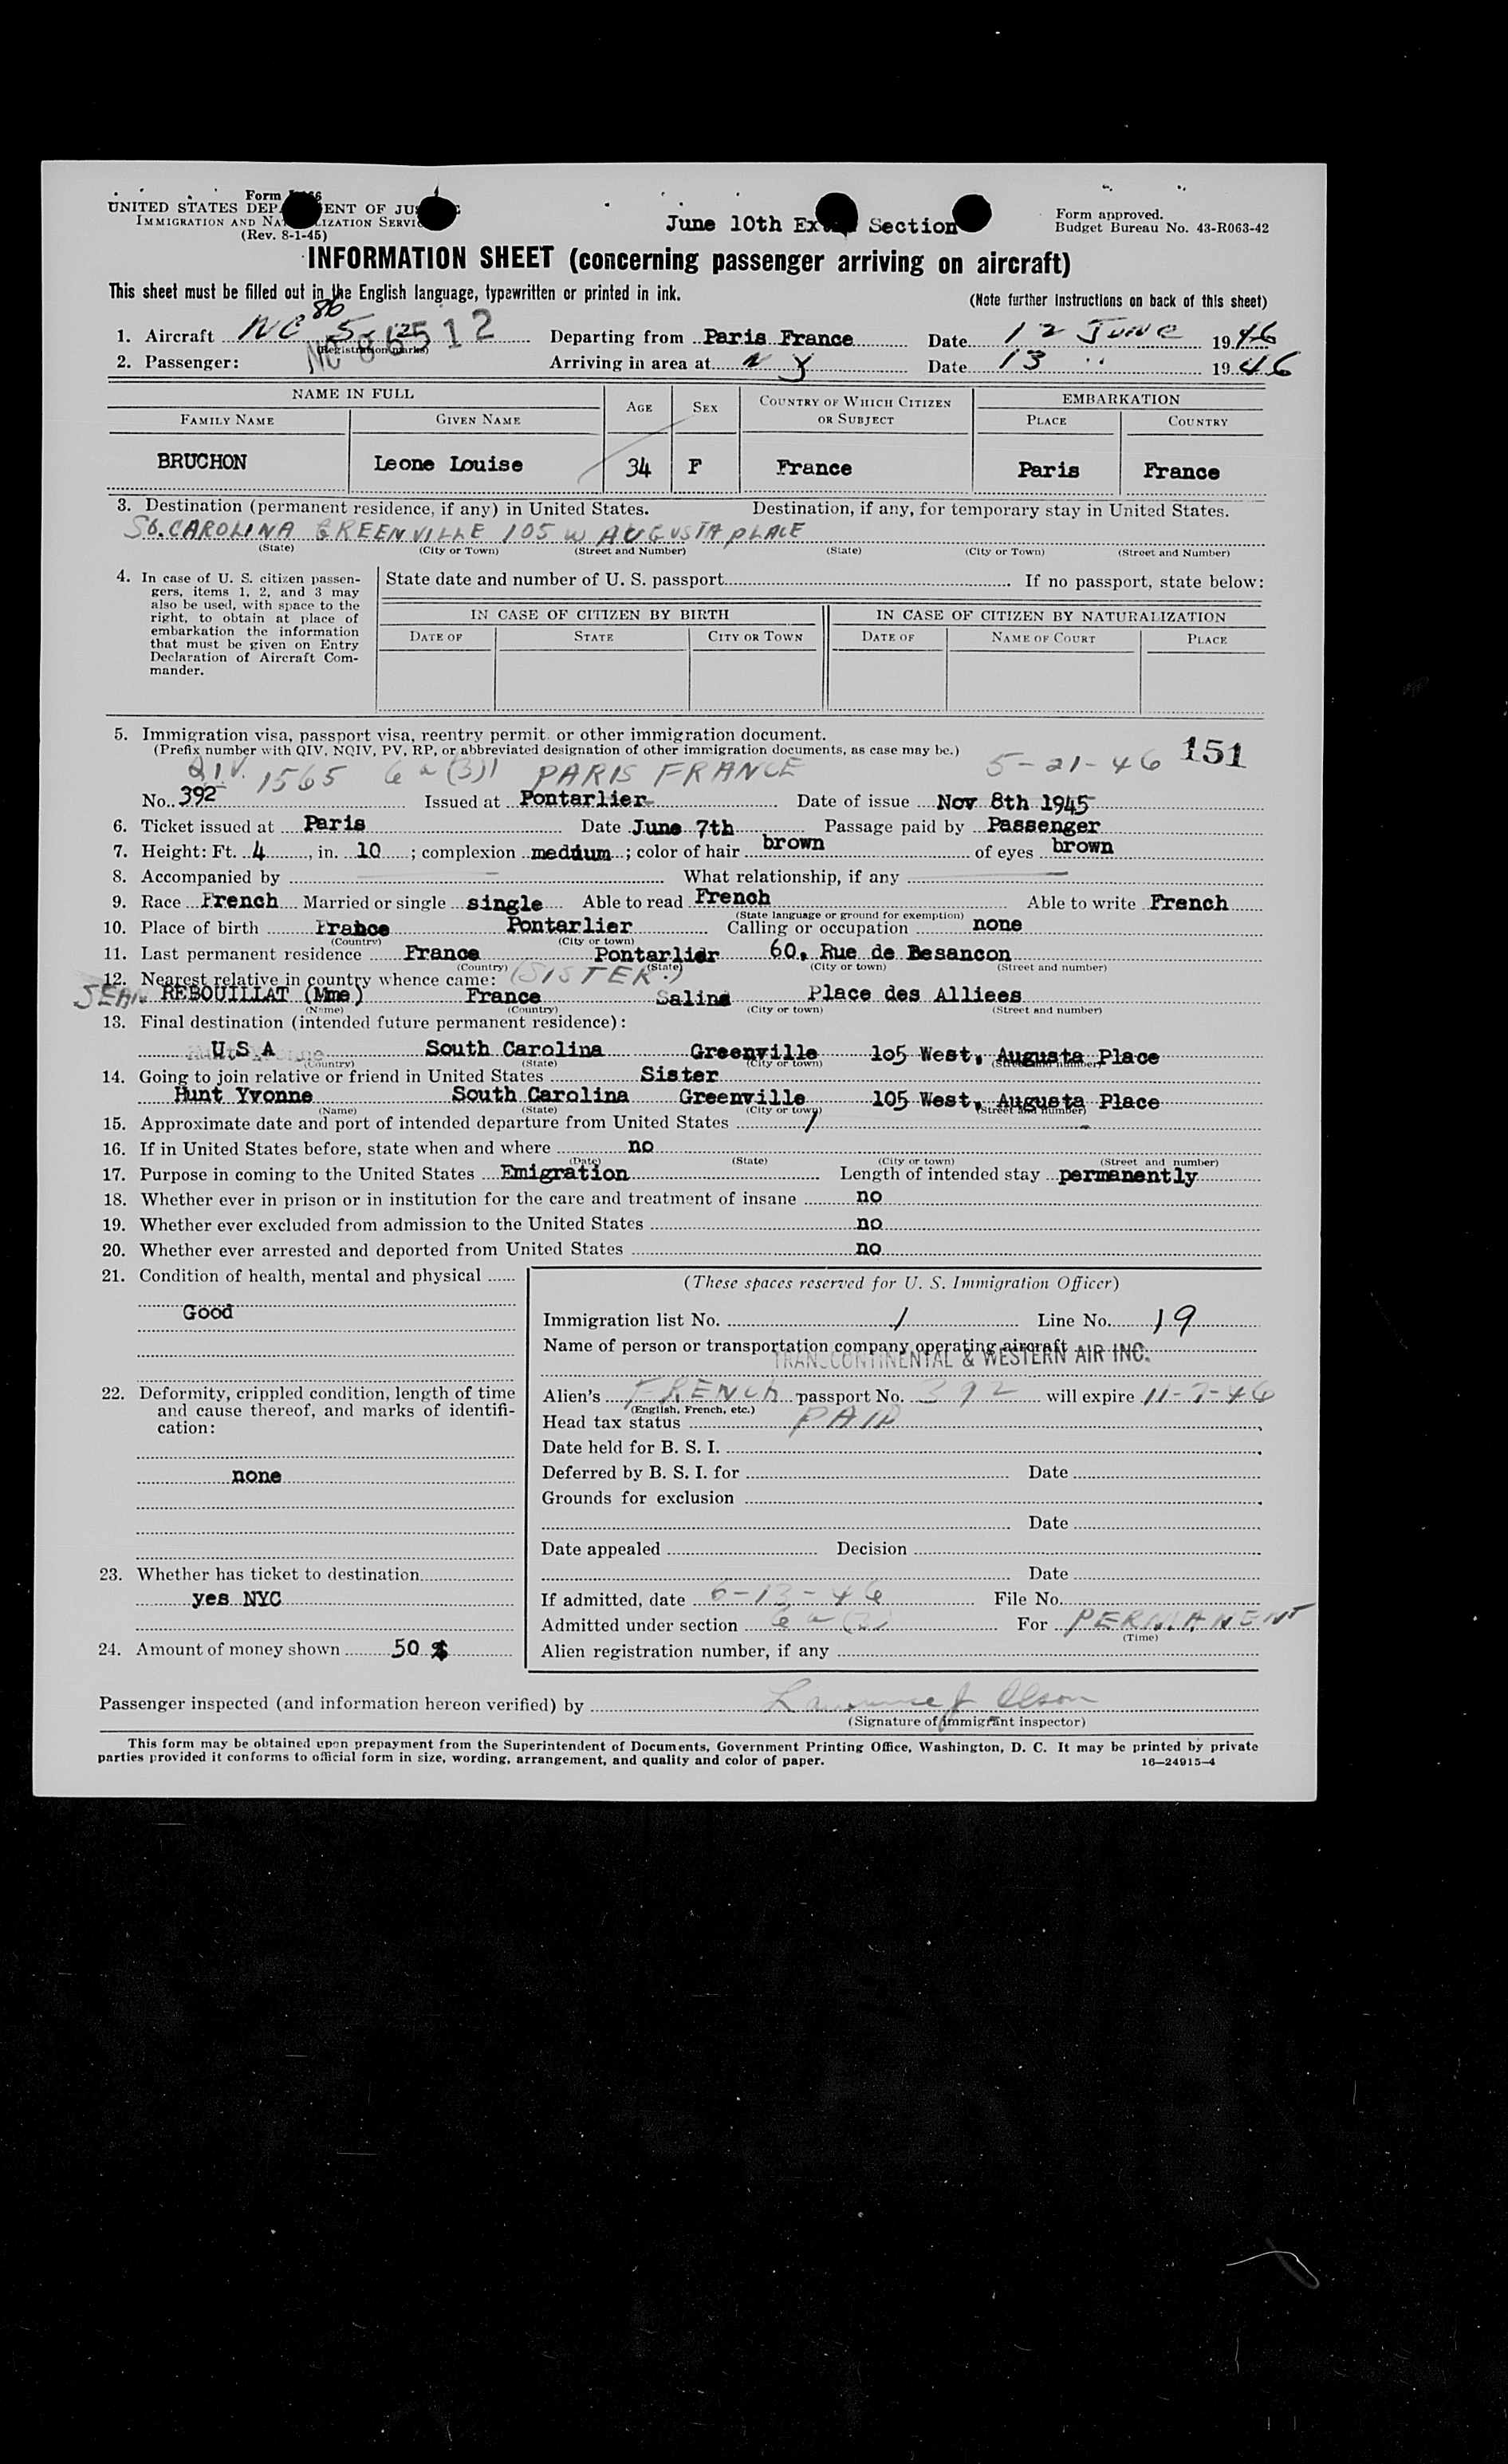 Form
UNITED STATES DEP ENT OF JUS
IMMIGRATION AND NA LIZATION SERVIC
(Rev. 8-1-45)
June 10th Section
Form approved.
Budget Bureau No. 43-R063-42
INFORMATION SHEET (concerning passenger arriving on aircraft)
This sheet must be filled out in the English language, typewritten or printed in ink.
(Note further instructions on back of this sheet)
86
1. Aircraft NC 5 12 Departing from Paris France Date 12 June 1946
NC 86512
(Registration marks)
2. Passenger: Arriving in area at N Y Date 13 " 1946
NAME IN FULL AGE SEX COUNTRY OF WHICH CITIZEN OR SUBJECT EMBARKATION
FAMILY NAME GIVEN NAME PLACE COUNTRY
BRUCHON Leone Louise 34 F France Paris France
3. Destination (permanent residence, if any) in United States. Destination, if any, for temporary stay in United States.
SO. CAROLINA GREENVILLE 105 W AUGUSTA PLACE
(State) (City or Town) (Street and Number) (State) (City or Town) (Street and Number)
4. In case of U. S. citizen passen-
gers, items 1, 2, and 3 may
also be used, with space to the
right, to obtain at place of
embarkation the information
that must be given on Entry
Declaration of Aircraft Com-
mander.
State date and number of U. S. passport If no passport, state below:
IN CASE OF CITIZEN BY BIRTH IN CASE OF CITIZEN BY NATURALIZATION
DATE OF STATE CITY OR TOWN DATE OF NAME OF COURT PLACE
5. Immigration visa, passport visa, reentry permit or other immigration document.
(Prefix number with QIV, NQIV, PV, RP, or abbreviated designation of other immigration documents, as case may be.)
QIV. 1565 6a(3)1 PARIS FRANCE 5-21-46 151
No. 392 Issued at Pontarlier Date of issue Nov 8th 1945
6. Ticket issued at Paris Date June 7th Passage paid by Passenger
7. Height: Ft. 4, in. 10; complexion medium; color of hair brown of eyes brown
8. Accompanied by What relationship, if any
9. Race French Married or single single Able to read French Able to write French
(State language or ground for exemption)
10. Place of birth France Pontarlier Calling or occupation none
(Country) (City or town)
11. Last permanent residence France Pontarlier 60, Rue de Besancon
(Country) (State) (City or town) (Street and number)
12. Nearest relative in country whence came: (SISTER.)
JEAN REBOUILLAT (Mme) France Salins Place des Alliees
(Name) (Country) (City or town) (Street and number)
13. Final destination (intended future permanent residence):
U S A South Carolina Greenville 105 West, Augusta Place
(Country) (State) (City or town) (Street and number)
14. Going to join relative or friend in United States Sister
Hunt Yvonne South Carolina Greenville 105 West, Augusta Place
(Name) (State) (City or town) (Street and number)
15. Approximate date and port of intended departure from United States /
16. If in United States before, state when and where no
(Date) (State) (City or town) (Street and number)
17. Purpose in coming to the United States Emigration Length of intended stay permanently
18. Whether ever in prison or in institution for the care and treatment of insane no
19. Whether ever excluded from admission to the United States no
20. Whether ever arrested and deported from United States no
21. Condition of health, mental and physical
Good
22. Deformity, crippled condition, length of time
and cause thereof, and marks of identifi-
cation:
none
23. Whether has ticket to destination
yes NYC
24. Amount of money shown 50 $
(These spaces reserved for U. S. Immigration Officer)
Immigration list No. 1 Line No. 19
Name of person or transportation company operating aircraft
TRANSCONTINENTAL & WESTERN AIR INC.
Alien's FRENCH passport No. 392 will expire 11-7-46
(English, French, etc.)
Head tax status PAID
Date held for B. S. I.
Deferred by B. S. I. for Date
Grounds for exclusion
Date
Date appealed Decision
Date
If admitted, date 6-13-46 File No.
Admitted under section 6a(3) For PERMANENT
(Time)
Alien registration number, if any
Passenger inspected (and information hereon verified) by Lawrence J Olson
(Signature of immigrant inspector)
This form may be obtained upon prepayment from the Superintendent of Documents, Government Printing Office, Washington, D. C. It may be printed by private
parties provided it conforms to official form in size, wording, arrangement, and quality and color of paper. 16—24915-4